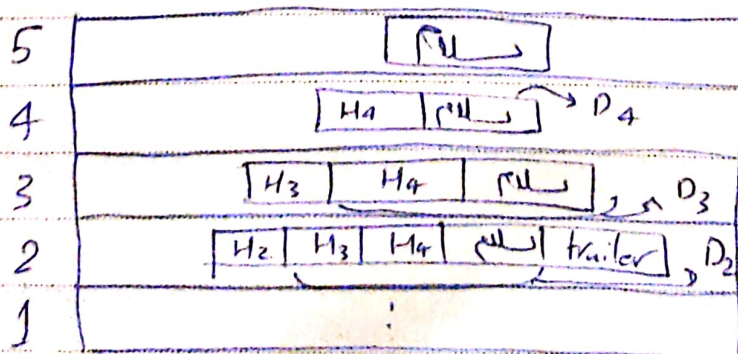 5 سلام
4 H4 سلام D4
3 H3 H4 سلام D3
2 H2 H3 H4 سلام trailer D2
1 :